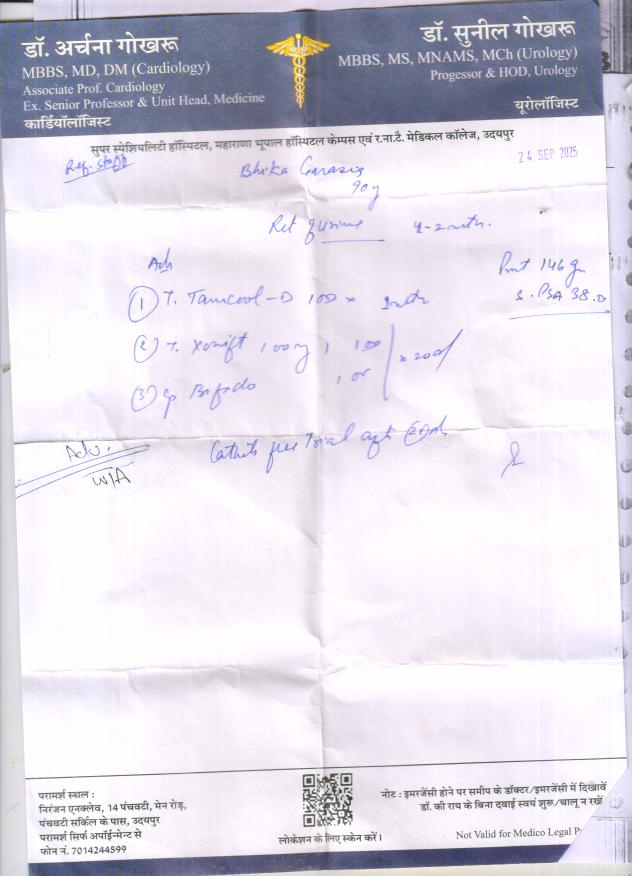 डॉ. अर्चना गोखरू
MBBS, MD, DM (Cardiology)
Associate Prof. Cardiology
Ex. Senior Professor & Unit Head, Medicine
कार्डियॉलॉजिस्ट
डॉ. सुनील गोखरू
MBBS, MS, MNAMS, MCh (Urology)
Progessor & HOD, Urology
यूरोलॉजिस्ट
सुपर स्पेशियलिटी हॉस्पिटल, महाराणा भूपाल हॉस्पिटल केम्पस एवं र.ना.टै. मेडिकल कॉलेज, उदयपुर
24 SEP 2025
Bhika
90y
Ret urine
Adv
146 g
S. PSA 38.0
① T. Tamcool-D 1OD x
② T. 100mg 1
③ Cp Bifido
Catheter free Trial
Adv.
W/A
परामर्श स्थल :
निरंजन एनक्लेव, 14 पंचवटी, मेन रोड़,
पंचवटी सर्किल के पास, उदयपुर
परामर्श सिर्फ अपॉईन्मेन्ट से
फोन नं. 7014244599
लोकेशन के लिए स्केन करें।
नोट : इमरजेंसी होने पर समीप के डॉक्टर/इमरजेंसी में दिखावें
डॉ. की राय के बिना दवाई स्वयं शुरू/चालू न रखें
Not Valid for Medico Legal